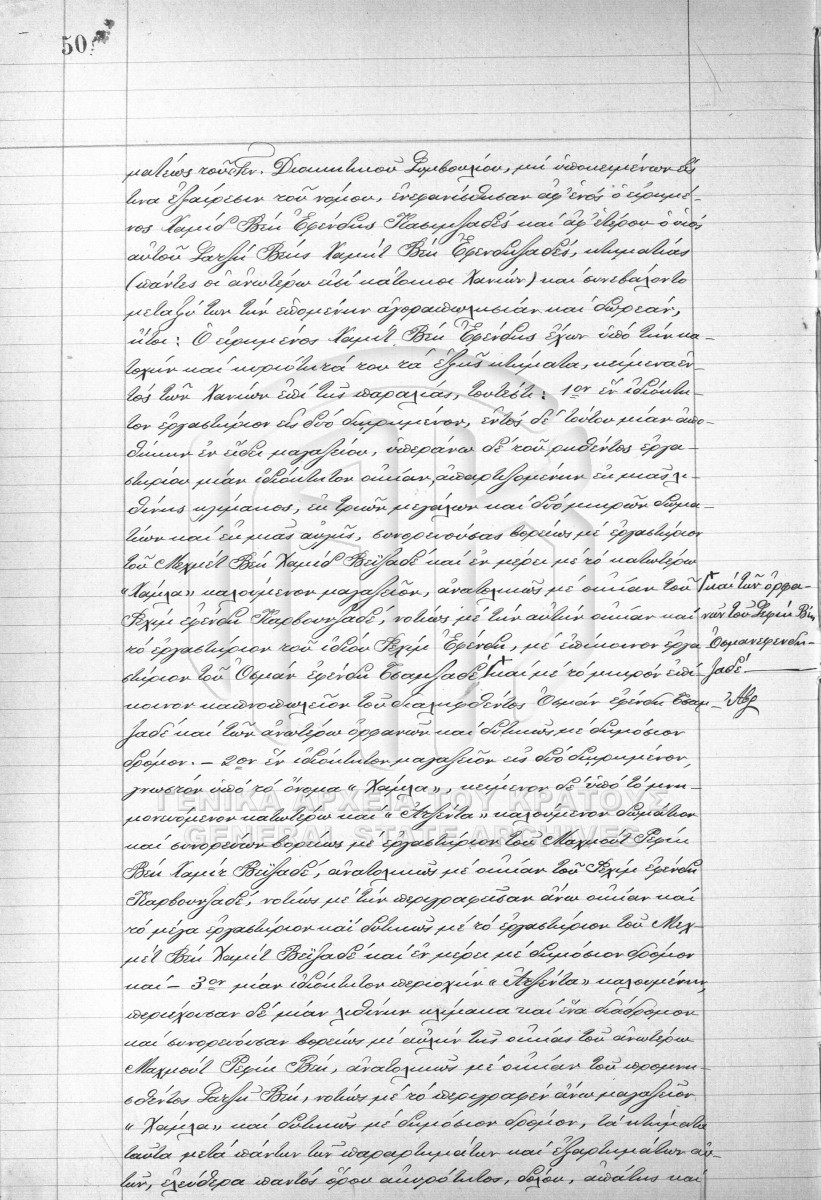 50
ματέως τοῦ Γεν. Διοικητικοῦ Συμβουλίου, μὴ ὑποκειμένων εἴς
τινα ἐξαίρεσιν τοῦ νόμου, ἐνεφανίσθησαν ἀφ' ἑνὸς ὁ εἰρημέ-
νος Χαμὶδ Βέη Ἐφένδης καὶ ἀφ' ἑτέρου ὁ υἱὸς
αὐτοῦ Βέης Χαμὶτ Βέη Ἐφενδηζαδές, κτηματίας
(πάντες οἱ ἀνωτέρω εἰσὶ κάτοικοι Χανίων) καὶ συνεβάλοντο
μεταξύ των τὴν ἑπομένην ἀγοραπωλησίαν καὶ δωρεάν,
ἤτοι: Ὁ εἰρημένος Χαμὶτ Βέη Ἐφένδης ἔχων ὑπὸ τὴν κα-
τοχὴν καὶ κυριότητά του τὰ ἑξῆς κτήματα, κείμενα ἐν-
τὸς τῶν Χανίων ἐπὶ τῆς παραλίας, τουτέστι: 1ον ἓν ἰδιόκτη-
τον ἐργαστήριον εἰς δύο διῃρημένον, ἐντὸς δὲ τούτου μίαν ἀπο-
θήκην ἐν εἴδει μαγαζείου, ὑπεράνω δὲ τοῦ ῥηθέντος ἐργα-
στηρίου μίαν ἰδιόκτητον οἰκίαν, ἀπαρτιζομένην ἐκ μιᾶς λι-
θίνης κλίμακος, ἐκ τριῶν μεγάλων καὶ δύο μικρῶν δωμα-
τίων καὶ ἐκ μιᾶς αὐλῆς, συνορευούσας βορείως μὲ ἐργαστήριον
τοῦ Μεχμὲτ Βέη Χαμὶδ Βεϊζαδὲ καὶ ἐν μέρει μὲ τὸ κατωτέρω
"Χάμλα" καλούμενον μαγαζεῖον, ἀνατολικῶς μὲ οἰκίαν τοῦ
Ῥεχὶμ ἐφένδη Καρβουνζαδέ, νοτίως μὲ τὴν αὐτὴν οἰκίαν καὶ
τὸ ἐργαστήριον τοῦ ἰδίου Ῥεχὶμ Ἐφένδη, μὲ ἐπίκοινον ἐργα-
στήριον τοῦ Ὀσμὰν ἐφένδη Τσαμζαδὲ καὶ μὲ τὸ μικρὸν ἐπί-
κοινον καπνοπωλεῖον τοῦ διαληφθέντος Ὀσμὰν ἐφένδη Τσαμ-
ζαδὲ καὶ τῶν ἀνωτέρω ὀρφανῶν καὶ δυτικῶς μὲ δημόσιον
δρόμον. – 2ον ἓν ἰδιόκτητον μαγαζεῖον εἰς δύο διῃρημένον,
γνωστὸν ὑπὸ τὸ ὄνομα "Χάμλα", κείμενον δὲ ὑπὸ τὸ μνη-
μονευόμενον κατωτέρω καὶ "Ἀτζέντα" καλούμενον δωμάτιον
καὶ συνορεύον βορείως μὲ ἐργαστήριον τοῦ Μαχμοὺτ Ῥεφὶκ
Βέη Χαμὶτ Βεϊζαδέ, ἀνατολικῶς μὲ οἰκίαν τοῦ Ῥεχὶμ ἐφένδη
Καρβουνζαδέ, νοτίως μὲ τὴν περιγραφεῖσαν ἄνω οἰκίαν καὶ
τὸ μέγα ἐργαστήριον καὶ δυτικῶς μὲ τὸ ἐργαστήριον τοῦ Μεχ-
μὲτ Βέη Χαμὶτ Βεϊζαδὲ καὶ ἐν μέρει μὲ δημόσιον δρόμον
καὶ – 3ον μίαν ἰδιόκτητον περιοχὴν "Ἀτζέντα" καλουμένην,
περιέχουσαν δὲ μίαν λιθίνην κλίμακα καὶ ἕνα διάδρομον
καὶ συνορεύουσαν βορείως μὲ αὐλὴν τῆς οἰκίας τοῦ ἀνωτέρω
Μαχμοὺτ Ῥεφὶκ Βέη, ἀνατολικῶς μὲ οἰκίαν τοῦ προμνη-
σθέντος Βέη, νοτίως μὲ τὸ περιγραφὲν ἄνω μαγαζεῖον
"Χάμλα" καὶ δυτικῶς μὲ δημόσιον δρόμον, τὰ κτήματα
ταῦτα μετὰ πάντων τῶν παραρτημάτων καὶ ἐξαρτημάτων αὐ-
τῶν, ἐλεύθερα παντὸς ὅρου ἀκυρότητος, δόλου, ἀπάτης καὶ
καὶ τῶν ὀρφα-
νῶν τοῦ Βέη
Ὀσμανεφενδη-
ζαδέ
ΓΕΝΙΚΑ ΑΡΧΕΙΑ ΤΟΥ ΚΡΑΤΟΥΣ
GENERAL STATE ARCHIVES